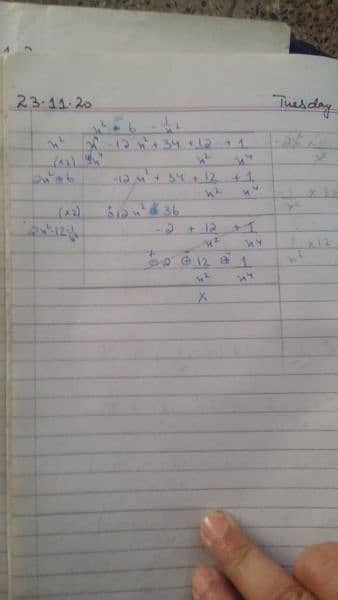 23.11.20 Tuesday
x² 6 - 1/x²
x² x⁴ -12x² + 34 + 12/x² + 1/x⁴
(x2) x⁴
2x² 6 -12x² + 34 + 12/x² + 1/x⁴
(x2) 12x² 36
2x²-12-1/x² -2 + 12/x² + 1/x⁴
2 12/x² 1/x⁴
x